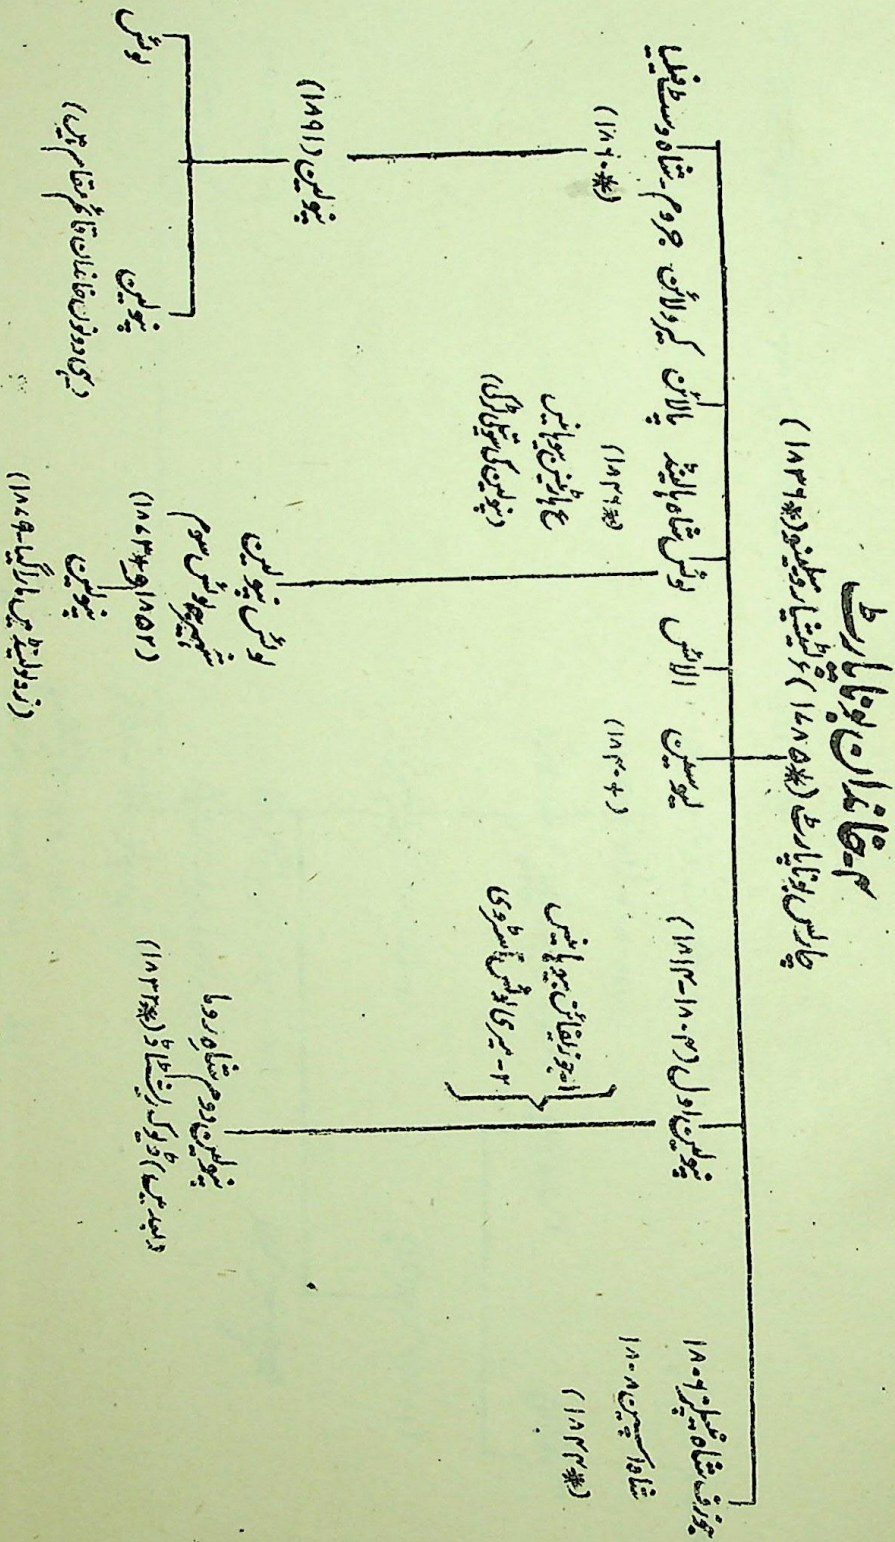 ۴۔ خاندان بوناپارٹ
چارلس بوناپارٹ (*۱۷۸۵) ؏ لیٹیشیا رومولینو (*۱۸۳۶)
جوزف شاہ نیپلز ۱۸۰۶
شاہ اسپین ۱۸۰۸
(*۱۸۴۴)
نپولین اول (۱۸۰۴-۱۸۱۴)
۱۔ جوزیفائن بیوہارنیس
۲۔ میری لوئس آسٹروی
نپولین دوم شاہ روما
(بعد میں) ڈیوک ریشٹاڈ (*۱۸۳۲)
لیوسین
(+۱۸۴۰)
الائس
لوئس شاہ ہالینڈ
(*۱۸۴۶)
ع ہارٹینس بیوہارنیس
(نپولین کی سوتیلی لڑکی)
لوئس نپولین
نپولین سوم
(۱۸۵۲ و *۱۸۷۳)
نپولین
(زولولینڈ میں مارا گیا۔ ۱۸۷۹)
پالائن
کیرولائن
جروم۔ شاہ وسٹ فیلیا
(*۱۸۶۰)
نپولین (۱۸۹۱)
نپولین
لوئس
(یہی دونوں خاندان کے قائم مقام ہیں)